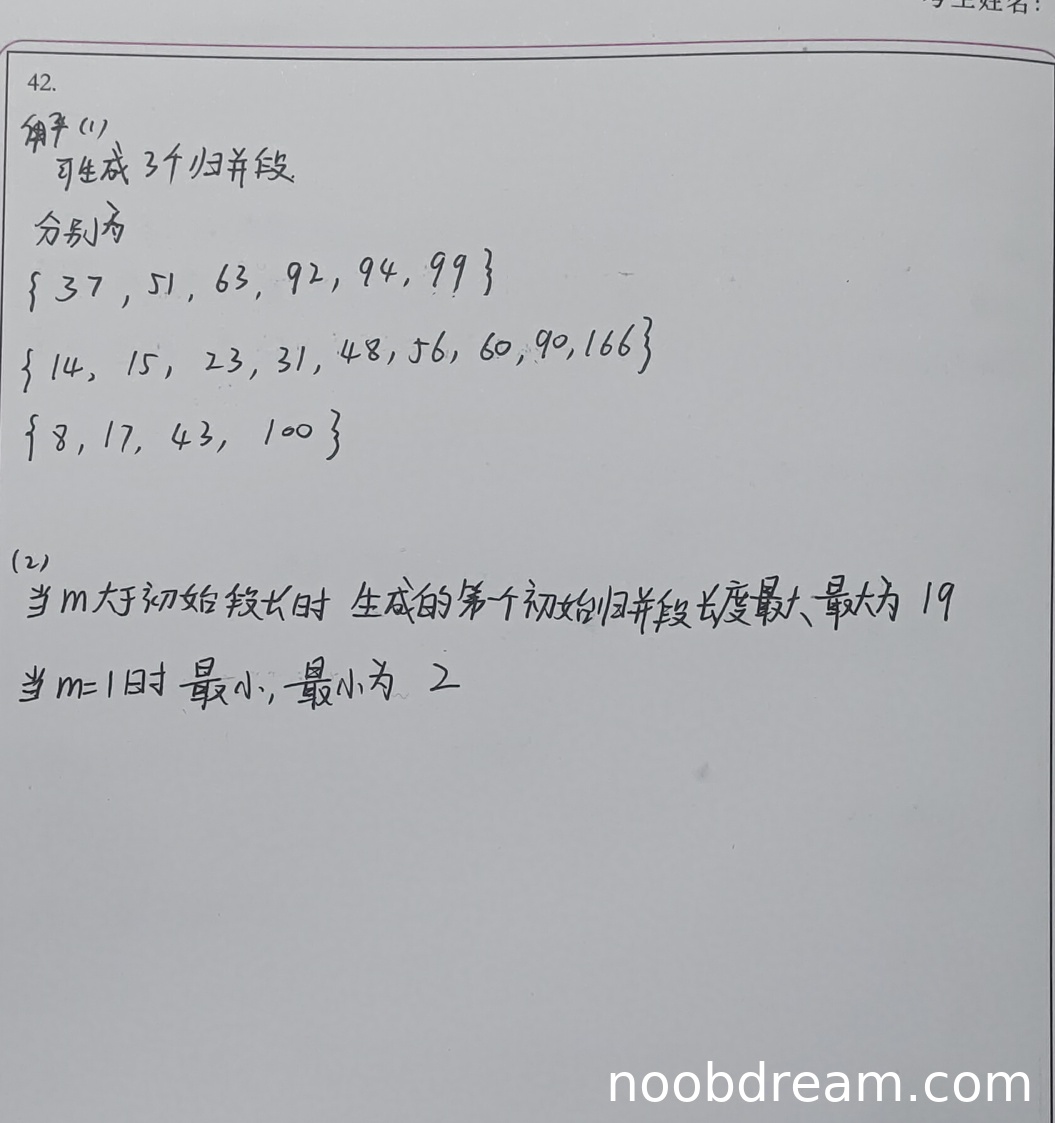 考生姓名:
42.
解(1)
可生成 3个归并段.
分别为
{ 37, 51, 63, 92, 94, 99 }
{ 14, 15, 23, 31, 48, 56, 60, 90, 166 }
{ 8, 17, 43, 100 }
(2)
当m大于初始段长时 生成的第个初始归并段长度最大、最大为 19
当m=1时 最小, 最小为 2
noobdream.com